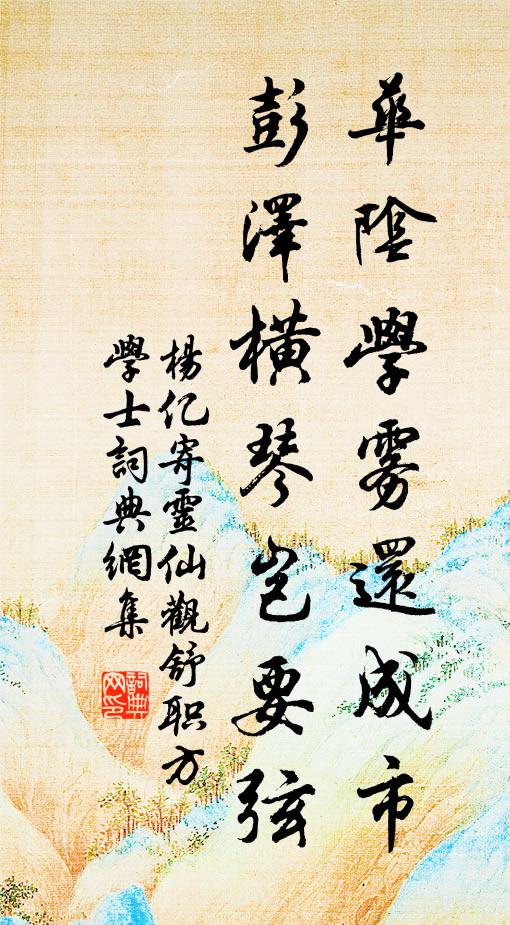 華陰學雾還成市
彭澤橫琴岂要弦
楊亿寄靈仙觀舒职方
學士詞典網集
詞典网印